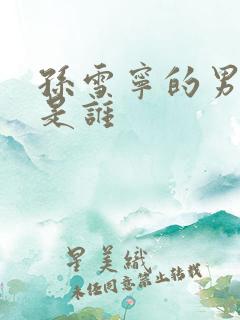 孫雪寧的男
是誰
星美織
未經同意禁止轉載